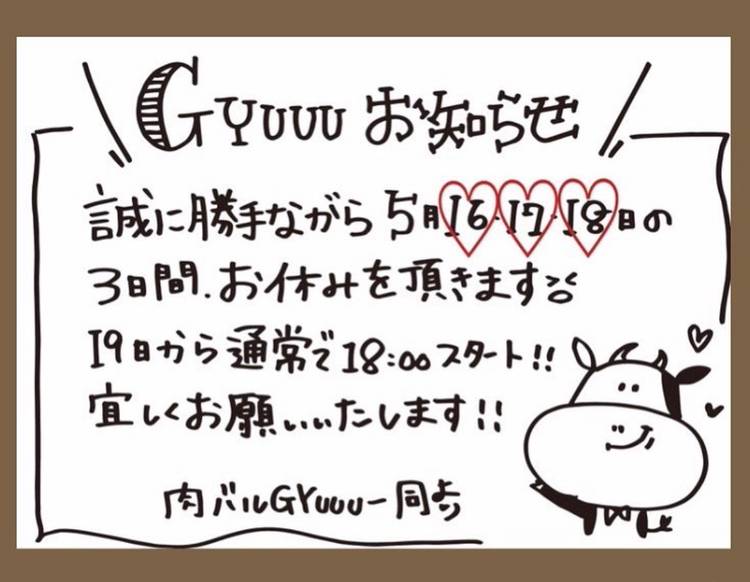 GYUUU お知らせ
誠に勝手ながら5月16.17.18日の
3日間.お休みを頂きます
19日から通常で18:00スタート!!
宜しくお願いいたします!!
肉バルGYuuu一同より